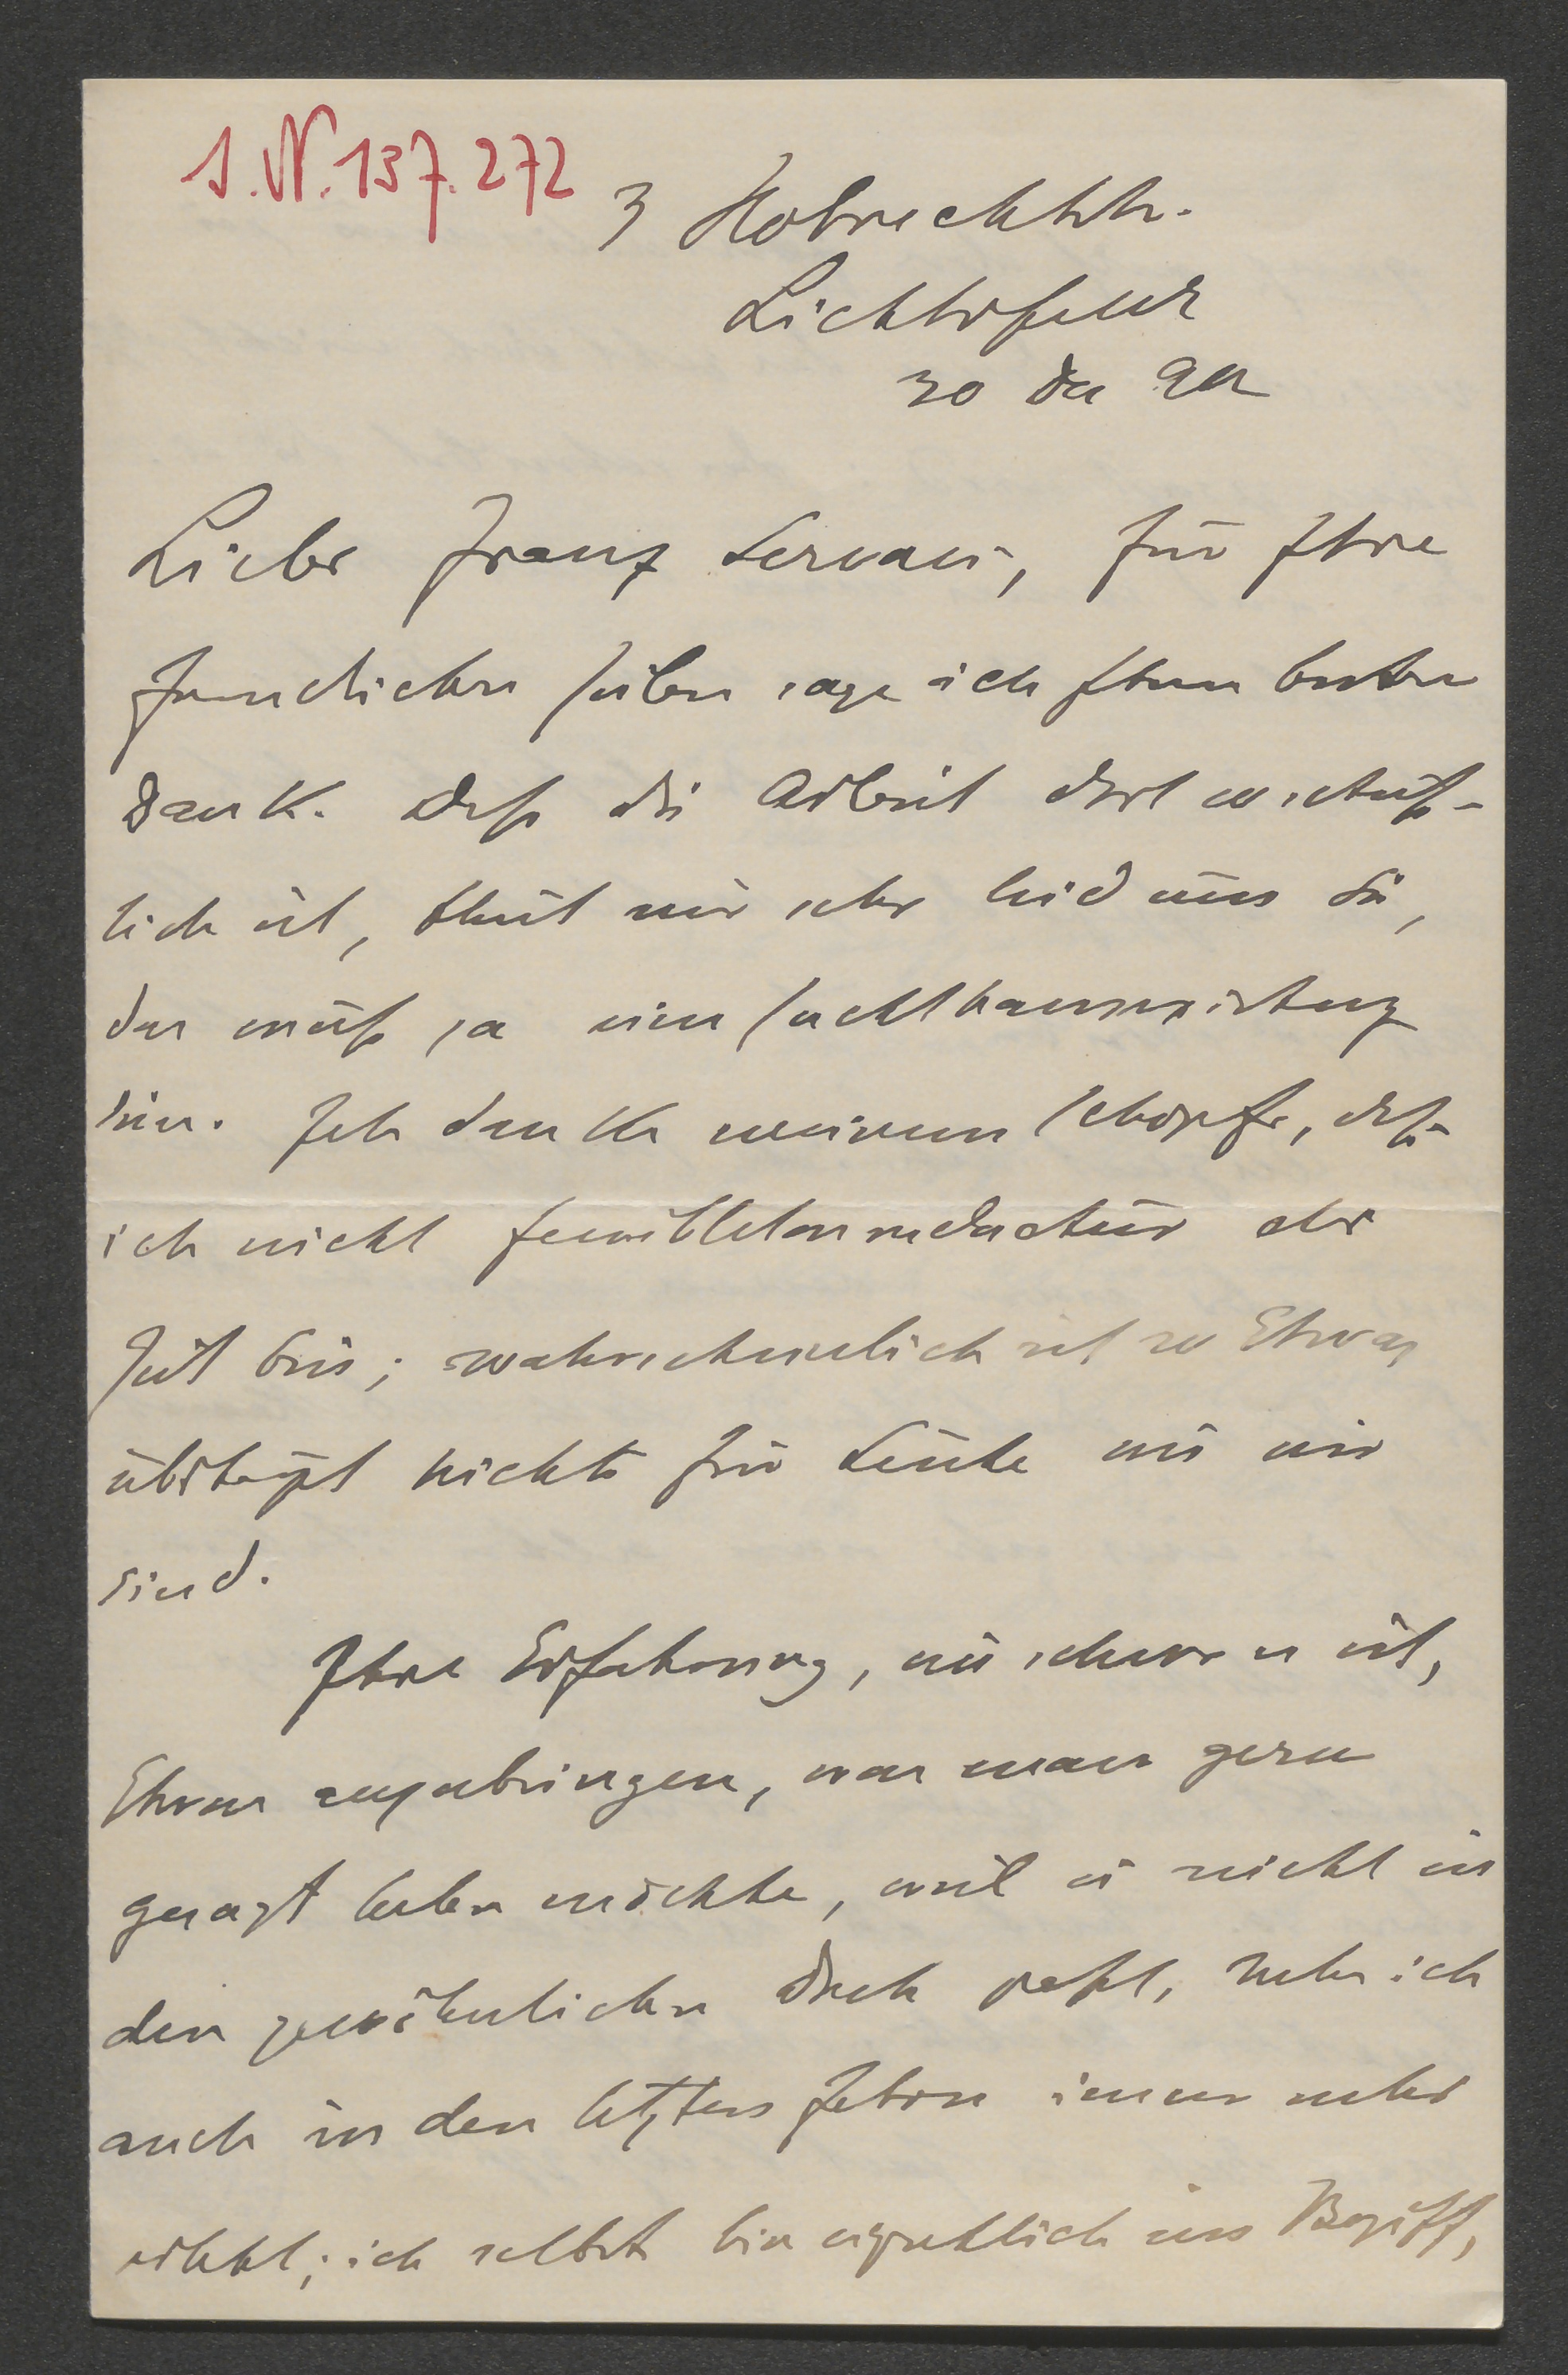 I.N. 137.272
3 Hobrechtstr.
Lichterfelde
30 Dec 99
Lieber Franz Servaes, für Ihre
freundlichen Zeilen sage ich Ihnen besten
Dank. Dass die Arbeit dort
lich ist, thut mir sehr leid um Sie,
das muß ja eine
sein. Ich danke meinem Schöpfer, daß
ich nicht Feuilletonredacteur der
Zeit bin; wahrscheinlich ist so Etwas
überhaupt nichts für Leute wie wir
sind.
Ihre Erfahrung, wie schwer es ist,
Etwas anzubringen, was man gern
gesagt haben möchte, weil es nicht in
den gewöhnlichen Dreck paßt, habe ich
auch in den letzten Jahren immer mehr
erlebt; ich selbst bin eigentlich im Begriff,